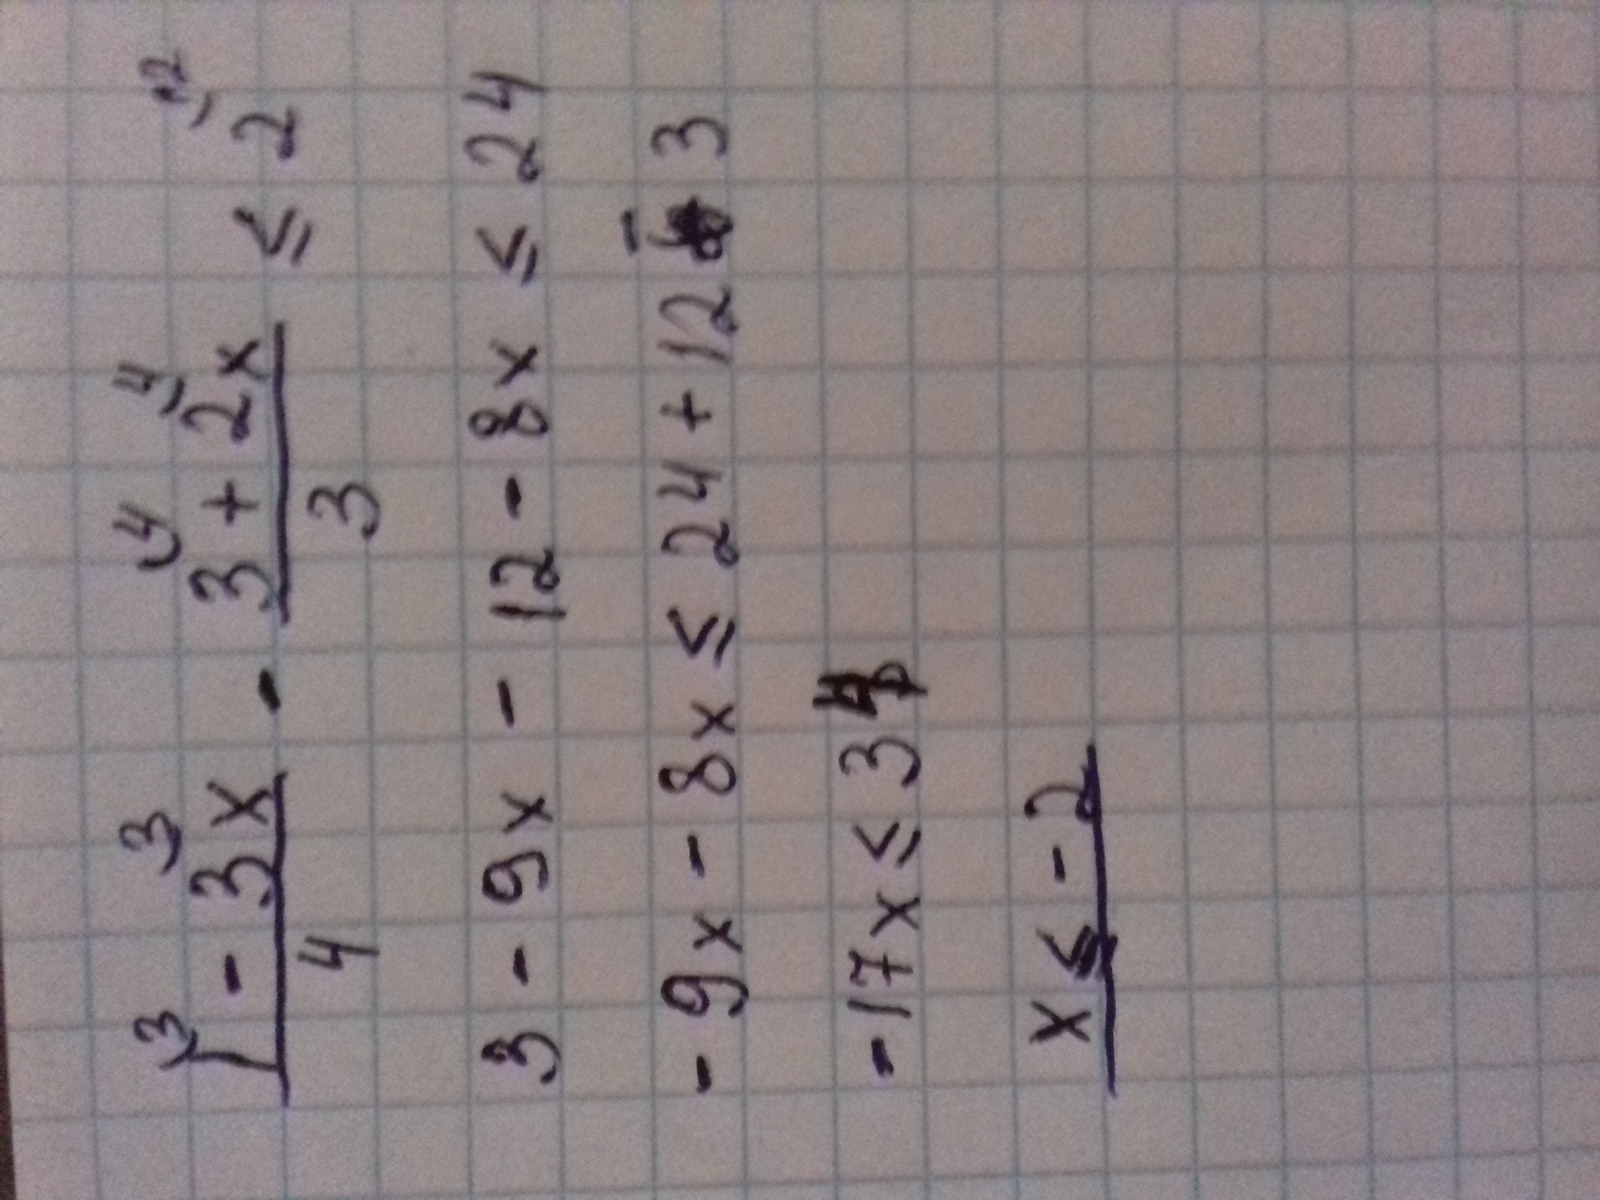 1³ - 3x³ / 4 - 3⁴ + 2x⁴ / 3 ≤ 2¹²
3 - 9x - 12 - 8x ≤ 24
- 9x - 8x ≤ 24 + 12 - 3
- 17x ≤ 3
x ≤ - 2